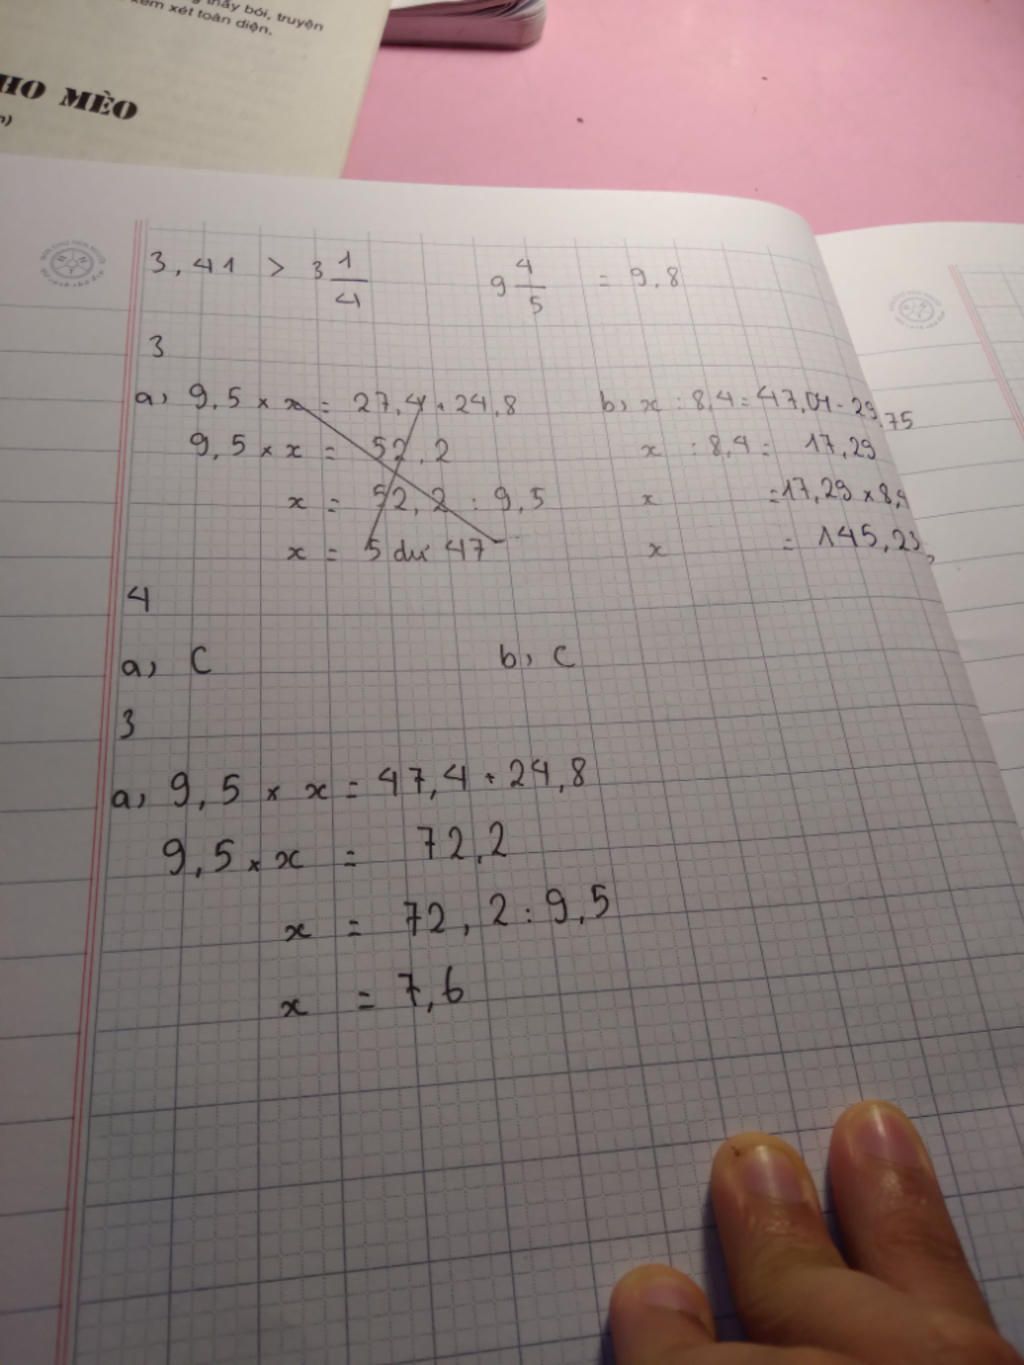 thầy bói, truyện
xem xét toàn diện.
HO MÈO
n)
3,41 > 3 1/4 9 4/5 = 9,8
3
a, 9,5 × x = 27,4 + 24,8 b, x : 8,4 = 47,04 - 29,75
9,5 × x = 52,2 x : 8,4 = 17,29
x = 52,2 : 9,5 x = 17,29 × 8,4
x = 5 dư 47 x = 145,23
4
a, C b, C
3
a, 9,5 × x = 47,4 + 24,8
9,5 × x = 72,2
x = 72,2 : 9,5
x = 7,6